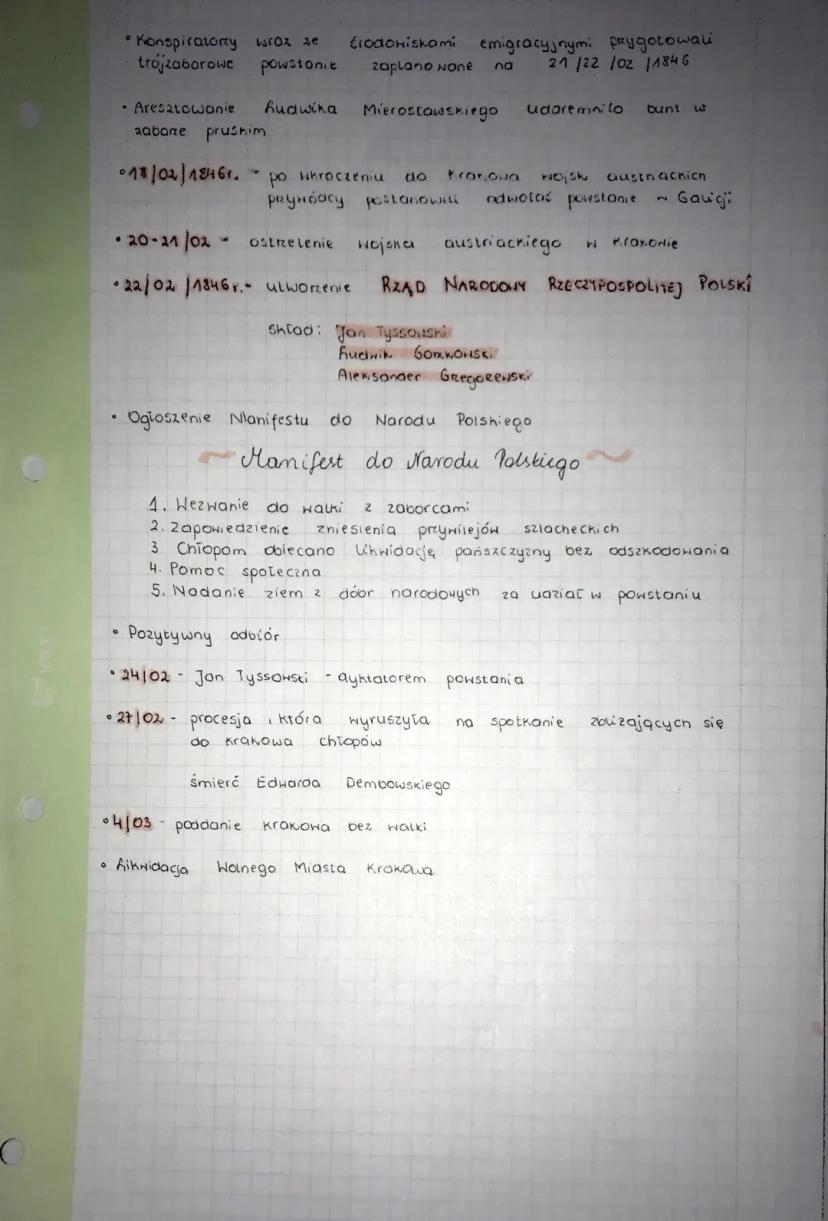 • Konspiratorzy wraz ze środowiskami emigracyjnymi przygotowali
trójzaborowe powstanie zaplanowane na 21/22/02/1846
• Aresztowanie Ludwika Mierosławskiego udaremniło bunt w
zaborze pruskim
• 18/02/1846r. - po wkroczeniu do Krakowa wojsk austriackich
przywódcy postanowili odwołać powstanie w Galicji
• 20-21/02 - ostrzelenie wojska austriackiego w Krakowie
• 22/02/1846r. - utworzenie RZĄD NARODOWY RZECZYPOSPOLITEJ POLSKI
Skład: Jan Tyssowski
Ludwik Gorzkowski
Aleksander Grzegorzewski
• Ogłoszenie Manifestu do Narodu Polskiego
~ Manifest do Narodu Polskiego ~
1. Wezwanie do walki z zaborcami
2. Zapowiedzienie zniesienia przywilejów szlacheckich
3 Chłopom obiecano likwidację pańszczyzny bez odszkodowania
4. Pomoc społeczna
5. Nadanie ziem z dóbr narodowych za udział w powstaniu
• Pozytywny odbiór
• 24/02 - Jan Tyssowski - dyktatorem powstania
• 27/02 - procesja, która wyruszyła na spotkanie zbliżających się
do Krakowa chłopów
śmierć Edwarda Dembowskiego
• 4/03 - poddanie Krakowa bez walki
• Likwidacja Wolnego Miasta Krakowa